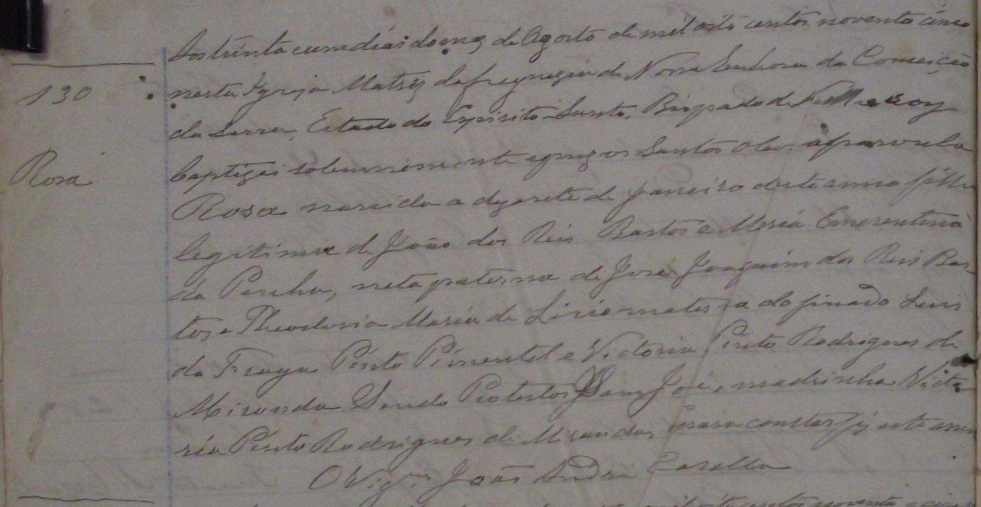 Aos trinta e um dias do mez de Agosto de mil oito centos noventa e cinco
130
nesta Igreja Matriz da freguezia de Nossa Senhora da Conceição
da Serra, Estado do Espirito Santo, Bispado de
Rosa
baptizei solemnemente e puz os Santos Oleos a parvula
Rosa nascida a dezesete de Janeiro deste anno filha
legitima de João dos Reis Bastos e Maria Emerentina
da Penha, neta paterna de José Joaquim dos Reis Bas-
tos e Theodoria Maria de materna do finado Luis
da Fraga Pinto Pimentel e Victoria Pinto Rodrigues de
Miranda Sendo São José e madrinha Victo-
ria Pinto Rodrigues de Miranda, para constar fiz este
O Vig.ro João
mil oito centos noventa e cinco